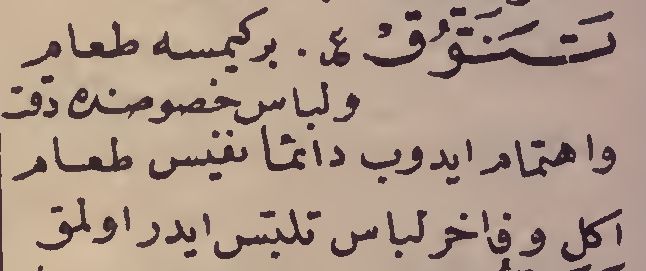 تَنَوُّقْ ع. بركيمسه طعام
ولباس خصوصنده دقت
واهتمام ايدوب دائمًا نفيس طعام
اكل وفاخر لباس تلبّس ايدر اولمق